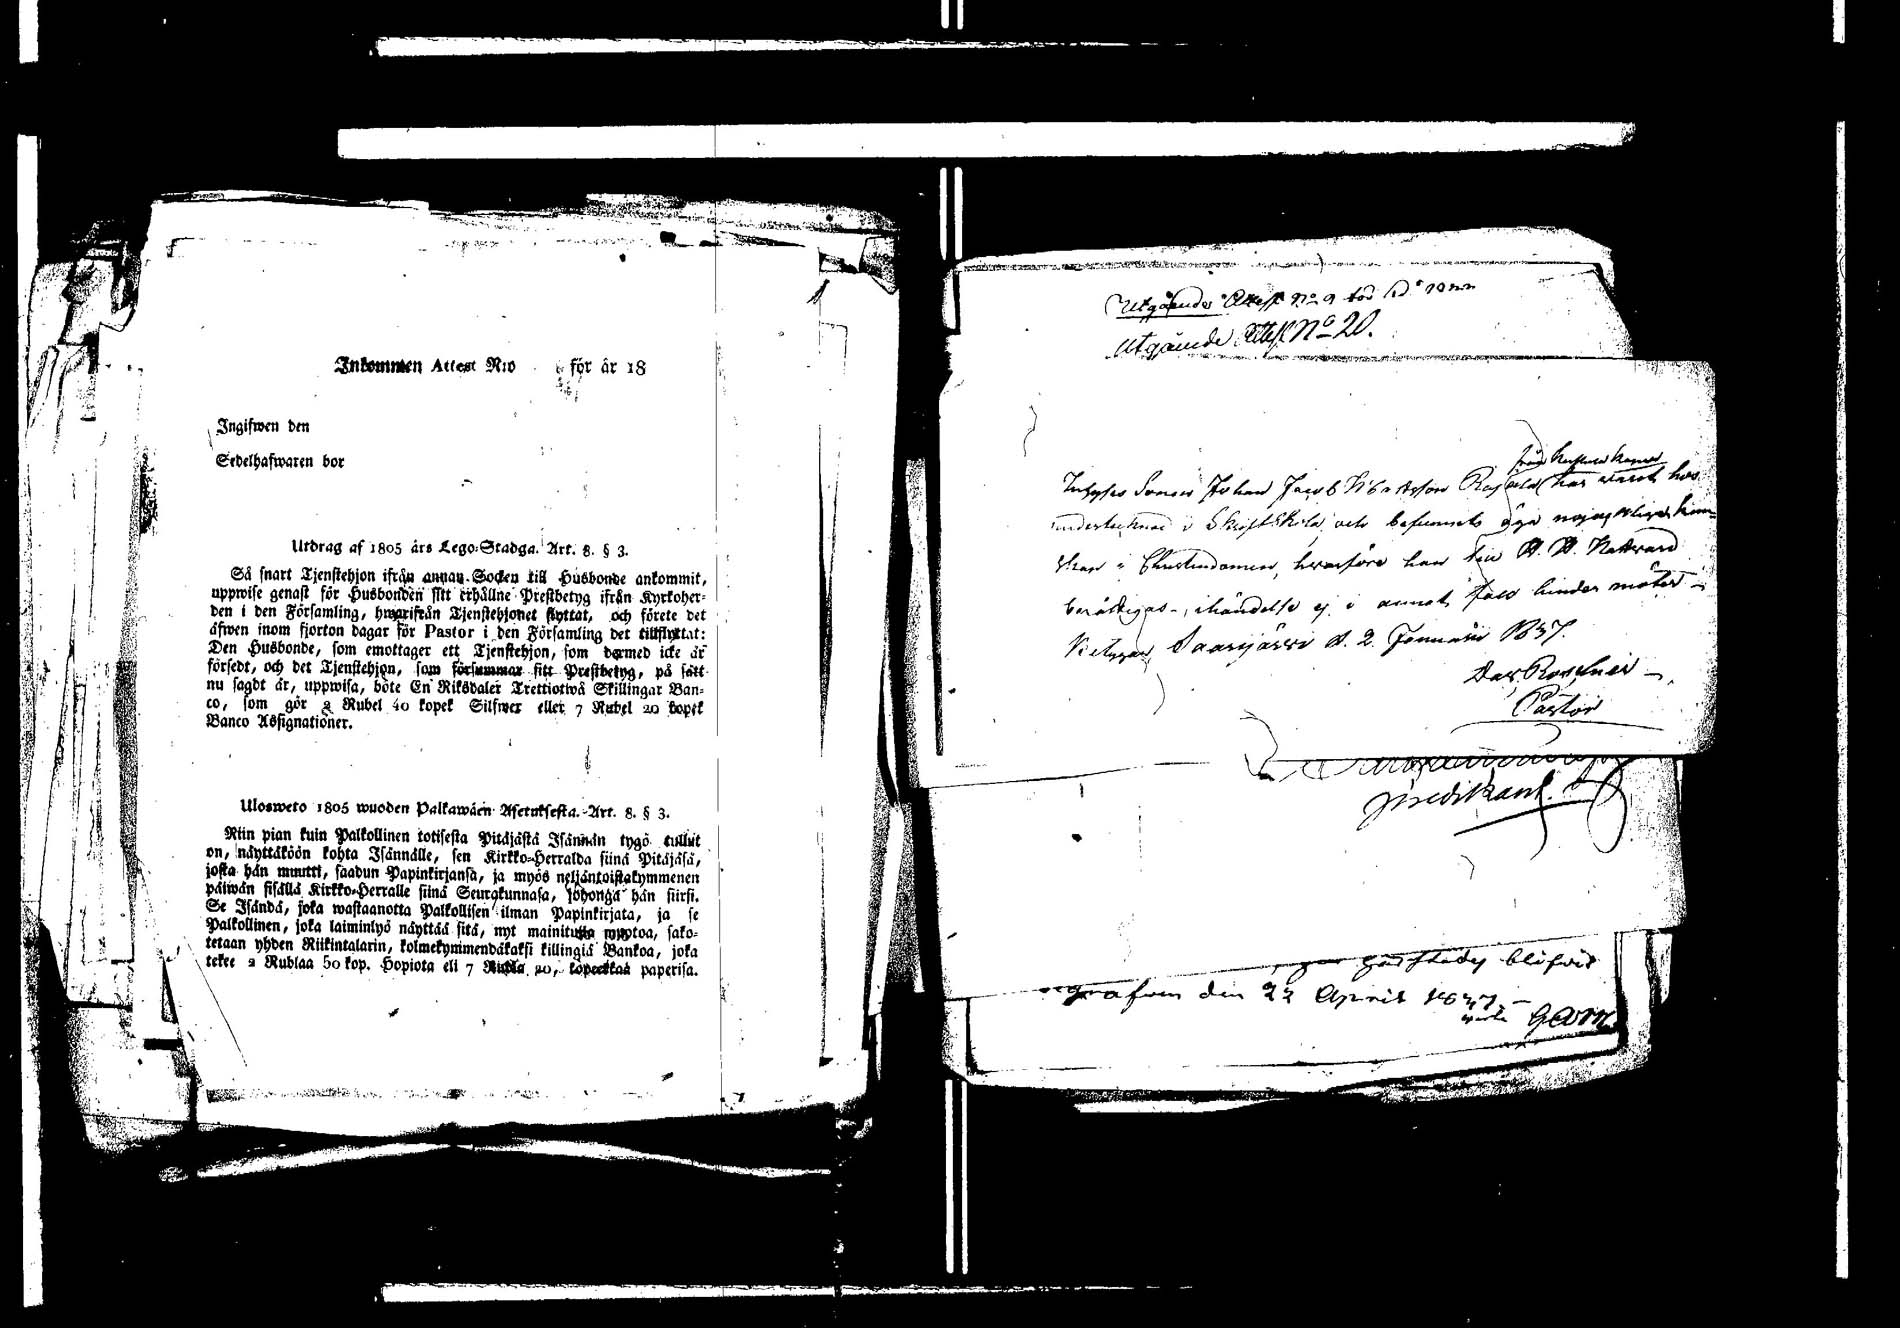 Inkommen Attest N:o för år 18
Ingifwen den
Sedelhafwaren bor
Utdrag af 1805 års Lego-Stadga. Art. 8. § 3.
Så snart Tjenstehjon ifrån annan Socken till Husbonde ankommit,
uppwise genast för Husbonden sitt erhållne Prestbetyg ifrån Kyrkoher-
den i den Församling, hwarifrån Tjenstehjonet flyttat, och förete det
äfwen inom fjorton dagar för Pastor i den Församling det tillflyttat:
Den Husbonde, som emottager ett Tjenstehjon, som dermed icke är
försedt, och det Tjenstehjon, som försummar sitt Prestbetyg, på sätt
nu sagdt är, uppwisa, böte En Riksdaler Trettiotwå Skillingar Ban-
co, som gör 2 Rubel 40 kopek Silfwer eller 7 Rubel 20 kopek
Banco Assignationer.
Ulosweto 1805 wuoden Palkawäen Asetuksesta. Art. 8. § 3.
Niin pian kuin Palkollinen toisesta Pitäjästä Isännän tygö tullut
on, näyttäköön kohta Isännälle, sen Kirkko-Herralda siinä Pitäjäsä,
josta hän muutti, saadun Papinkirjansa, ja myös neljäntoistakymmenen
päiwän sisällä Kirkko-Herralle siinä Seurakunnasa, johonga hän siirsi.
Se Isändä, joka wastaanotta Palkollisen ilman Papinkirjata, ja se
Palkollinen, joka laiminlyö näyttää sitä, nyt mainitulla muotoa, sako-
tetaan yhden Riikintalarin, kolmekymmendäkaksi killingiä Bankoa, joka
tekee 2 Rublaa 50 kop. Hopiota eli 7 Rubla 20, kopeekkaa paperisa.
Utgående Attest No 9
Utgående Attest No 20.
Sonen Johan Jacob har warit hos
undertecknad i Skriftskola, och befunnits äga nöjagtlige kun-
skap i Christendomen, hwarföre han till H. H. Nattward
berättigas, ihändelse ej i annat fall hinder möter
Saarijärvi d. 2 Januarii 1837.
Pastor
Predikant.
blifvit
begrafven den 22 April 1837